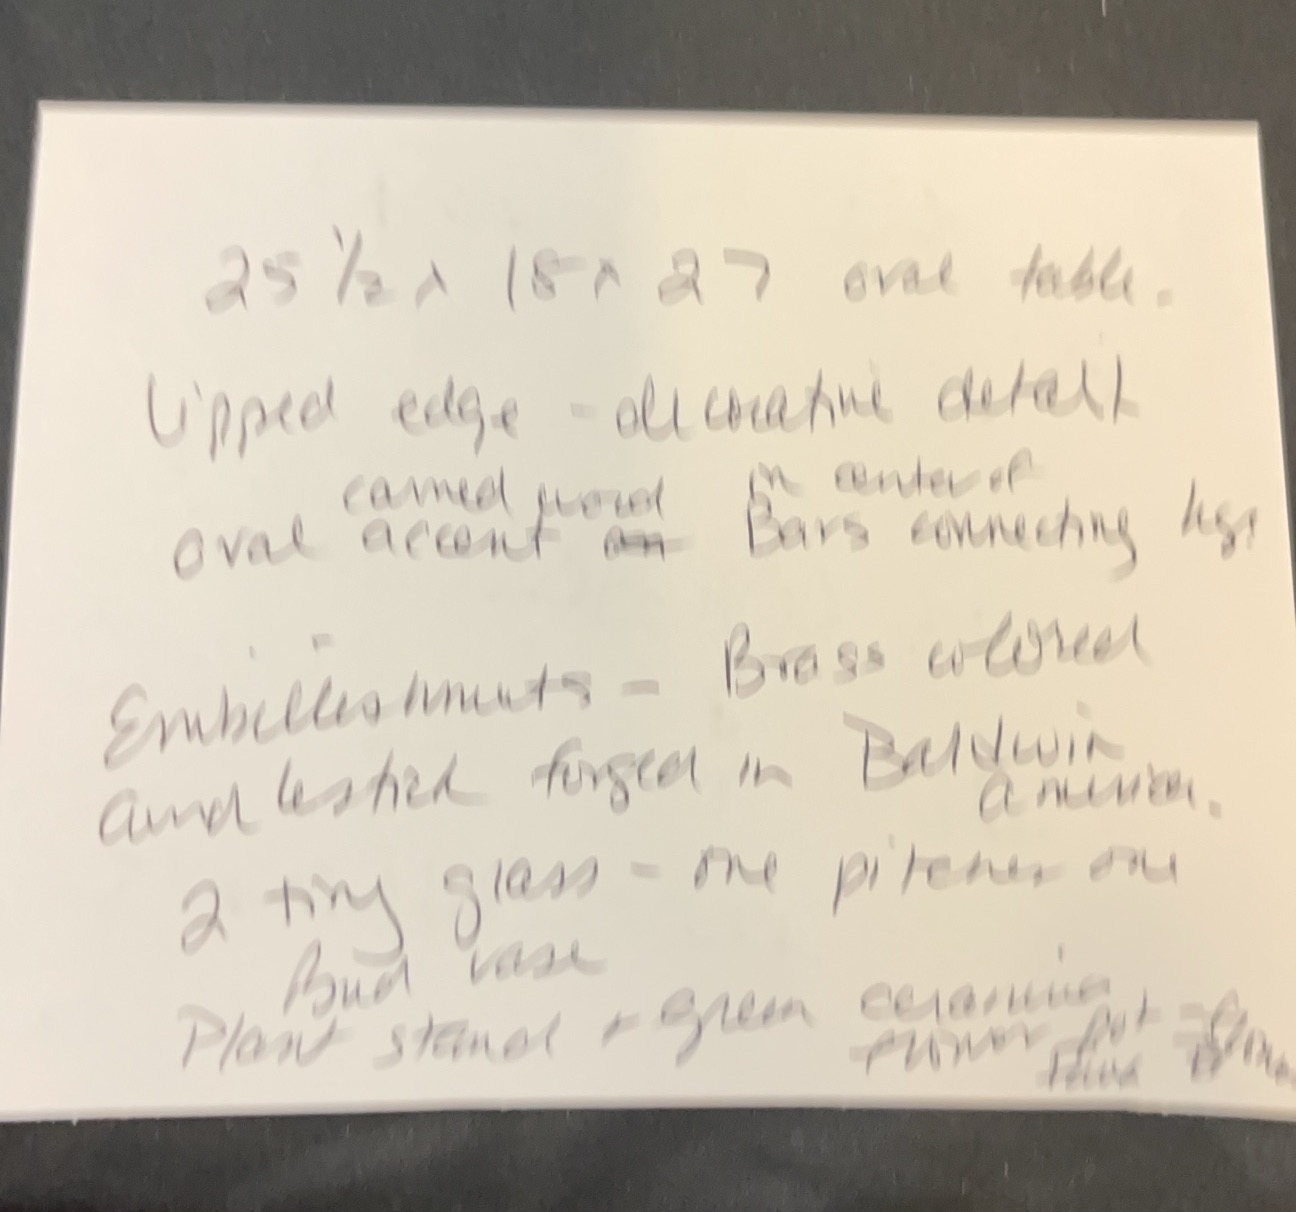 25 1/2 x 18 x 27 oval table.
Lipped edge - decorative detail
carved wood in center of
oval accent Bars connecting legs
Embellishments - Brass colored
candlestick forged in Baldwin
America.
2 tiny glass - one pitcher one
Bud vase
Plant stand + green ceramic
flower pot